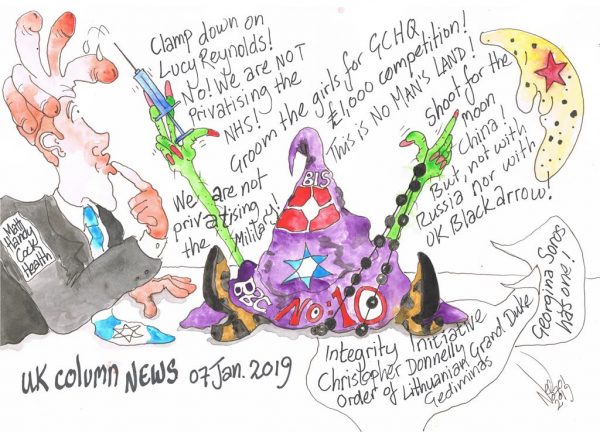 Clamp down on
Lucy Reynolds!
No! We are NOT
Privatising the
NHS!
We are not
privatising
the Military!
Groom the girls for GCHQ
£1,000 competition!
This is NO MAN'S LAND!
Shoot for the
moon
China!
But, not with
Russia nor with
UK Blackarrow!
Matt
Handy
Cock
Health
BIS
BBC
No:10
Georgina Soros
has one!
Integrity Initiative
Christopher Donnelly
Order of Lithuanian Grand Duke
Gediminas
UK Column NEWS 07 Jan. 2019
2019